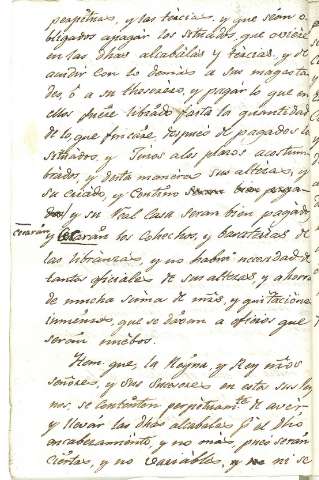 perpétua, y las tércias, y que sean o
bligados a pagar los situados, que oviere
en las dhas alcabalas y tércias, y de
acudir con lo demas a sus magesta
des, ó a su thesorero, y pagar lo que en
ellos fuere librado fasta la quantidad
de lo que fincare despues de pagados los
situados, y Juros a los plazos acostum
brados, y desta manera sus altezas, y
su criado, y contino
y su Real Casa seran bien pagados
cesarán
y los Cohechos, y baraterias de
las libranzas, y no habrá necesidad de
tantos oficiales de sus altezas, y ahorra
de mucha suma de mrs, y quitaciones
inmensas, que se davan a oficios que
serán nuebos.
Item que, la Reyna, y Rey nros
señores, y sus Sucesores en estos sus Rey
nos, se contenten perpetuam.te de aver
y llevar las dhas alcabalas p.r el dho
encabezamiento, y no más, pues serán
ciertas, y no variables, y ni se